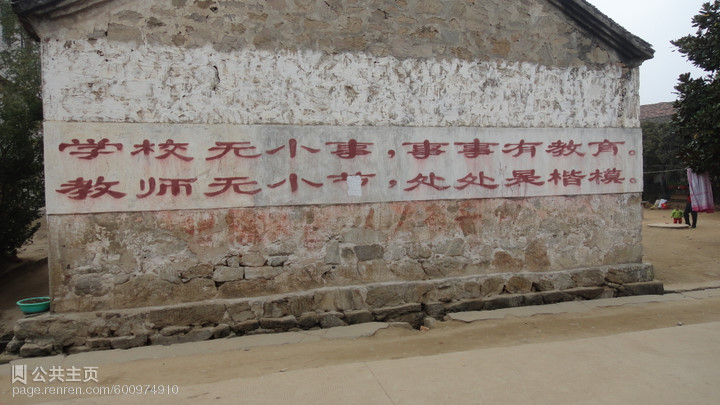 学校无小事，事事有教育。
教师无小节，处处是楷模。
公共主页
page.renren.com/600974910